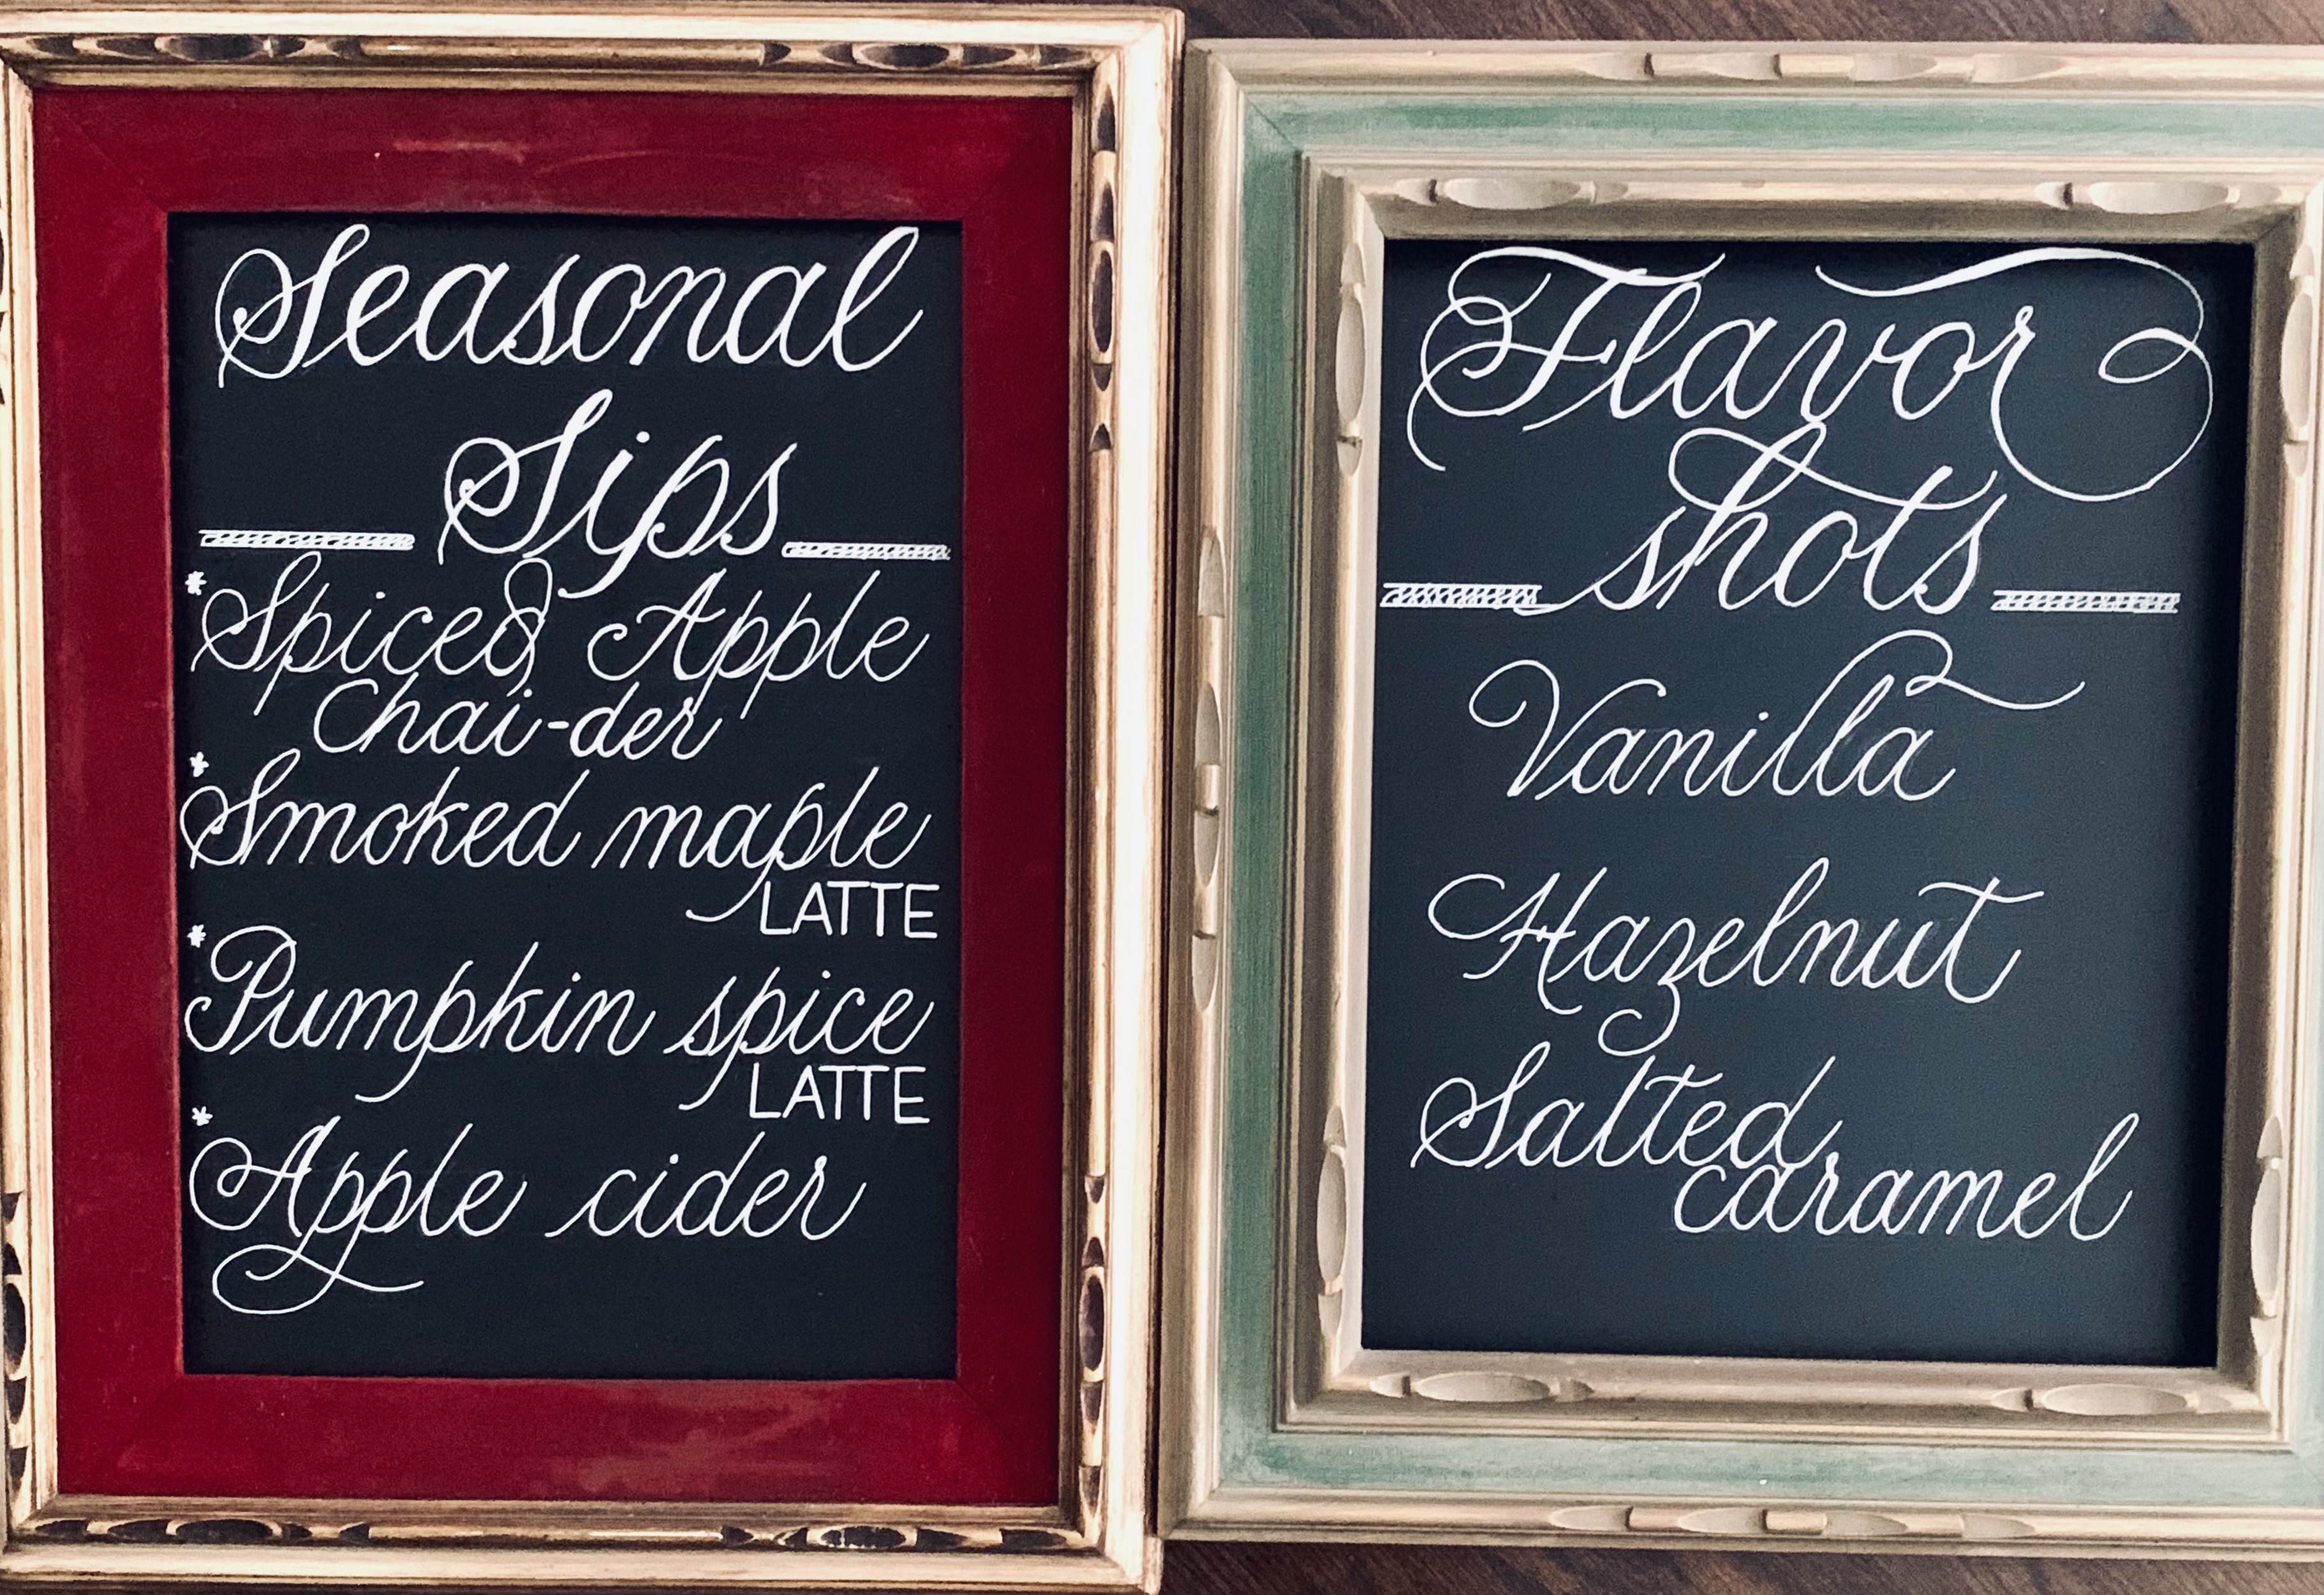 Seasonal
Sips
*Spiced Apple
Chai-der
*Smoked maple
LATTE
*Pumpkin spice
LATTE
*Apple cider
Flavor
shots
Vanilla
Hazelnut
Salted
caramel